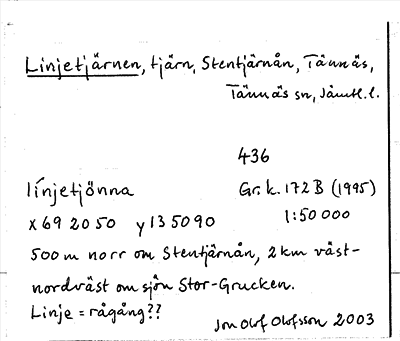 Linjetjärnen, tjärn, Stentjärnån, Tännäs,
Tännäs sn, Jämtl. l.
436
línjetjönna Gr. k. 172 B (1995)
x 69 20 50 y 13 50 90 1:50 000
500 m norr om Stentjärnån, 2 km väst-
nordväst om sjön Stor-Grucken.
Linje = rågång??
Jon Olof Olofsson 2003